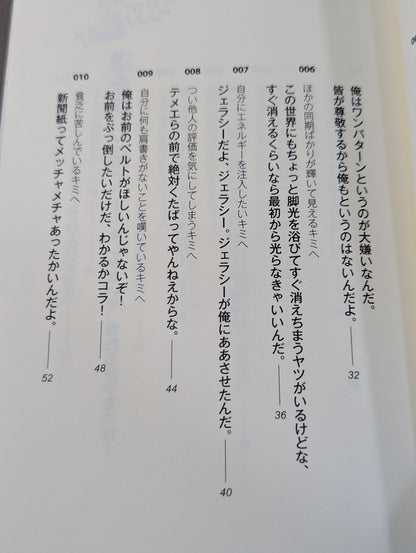 俺はワンパターンというのが大嫌いなんだ。
皆が尊敬するから俺もというのはないんだよ。
32
006
ほかの同期ばかりが輝いて見えるキミへ
この世界にもちょっと脚光を浴びてすぐ消えちまうヤツがいるけどな、
すぐ消えるくらいなら最初から光らなきゃいいんだ。
36
007
自分にエネルギーを注入したいキミへ
ジェラシーだよ、ジェラシー。ジェラシーが俺にああさせたんだ。
40
008
つい他人の評価を気にしてしまうキミへ
テメエらの前で絶対くたばってやんねえからな。
44
009
自分に何も肩書きがないことを嘆いているキミへ
俺はお前のベルトがほしいんじゃないぞ!
お前をぶっ倒したいだけだ、わかるかコラ!
48
010
貧乏に苦しんでいるキミへ
新聞紙ってメッチャメチャあったかいんだよ。
52